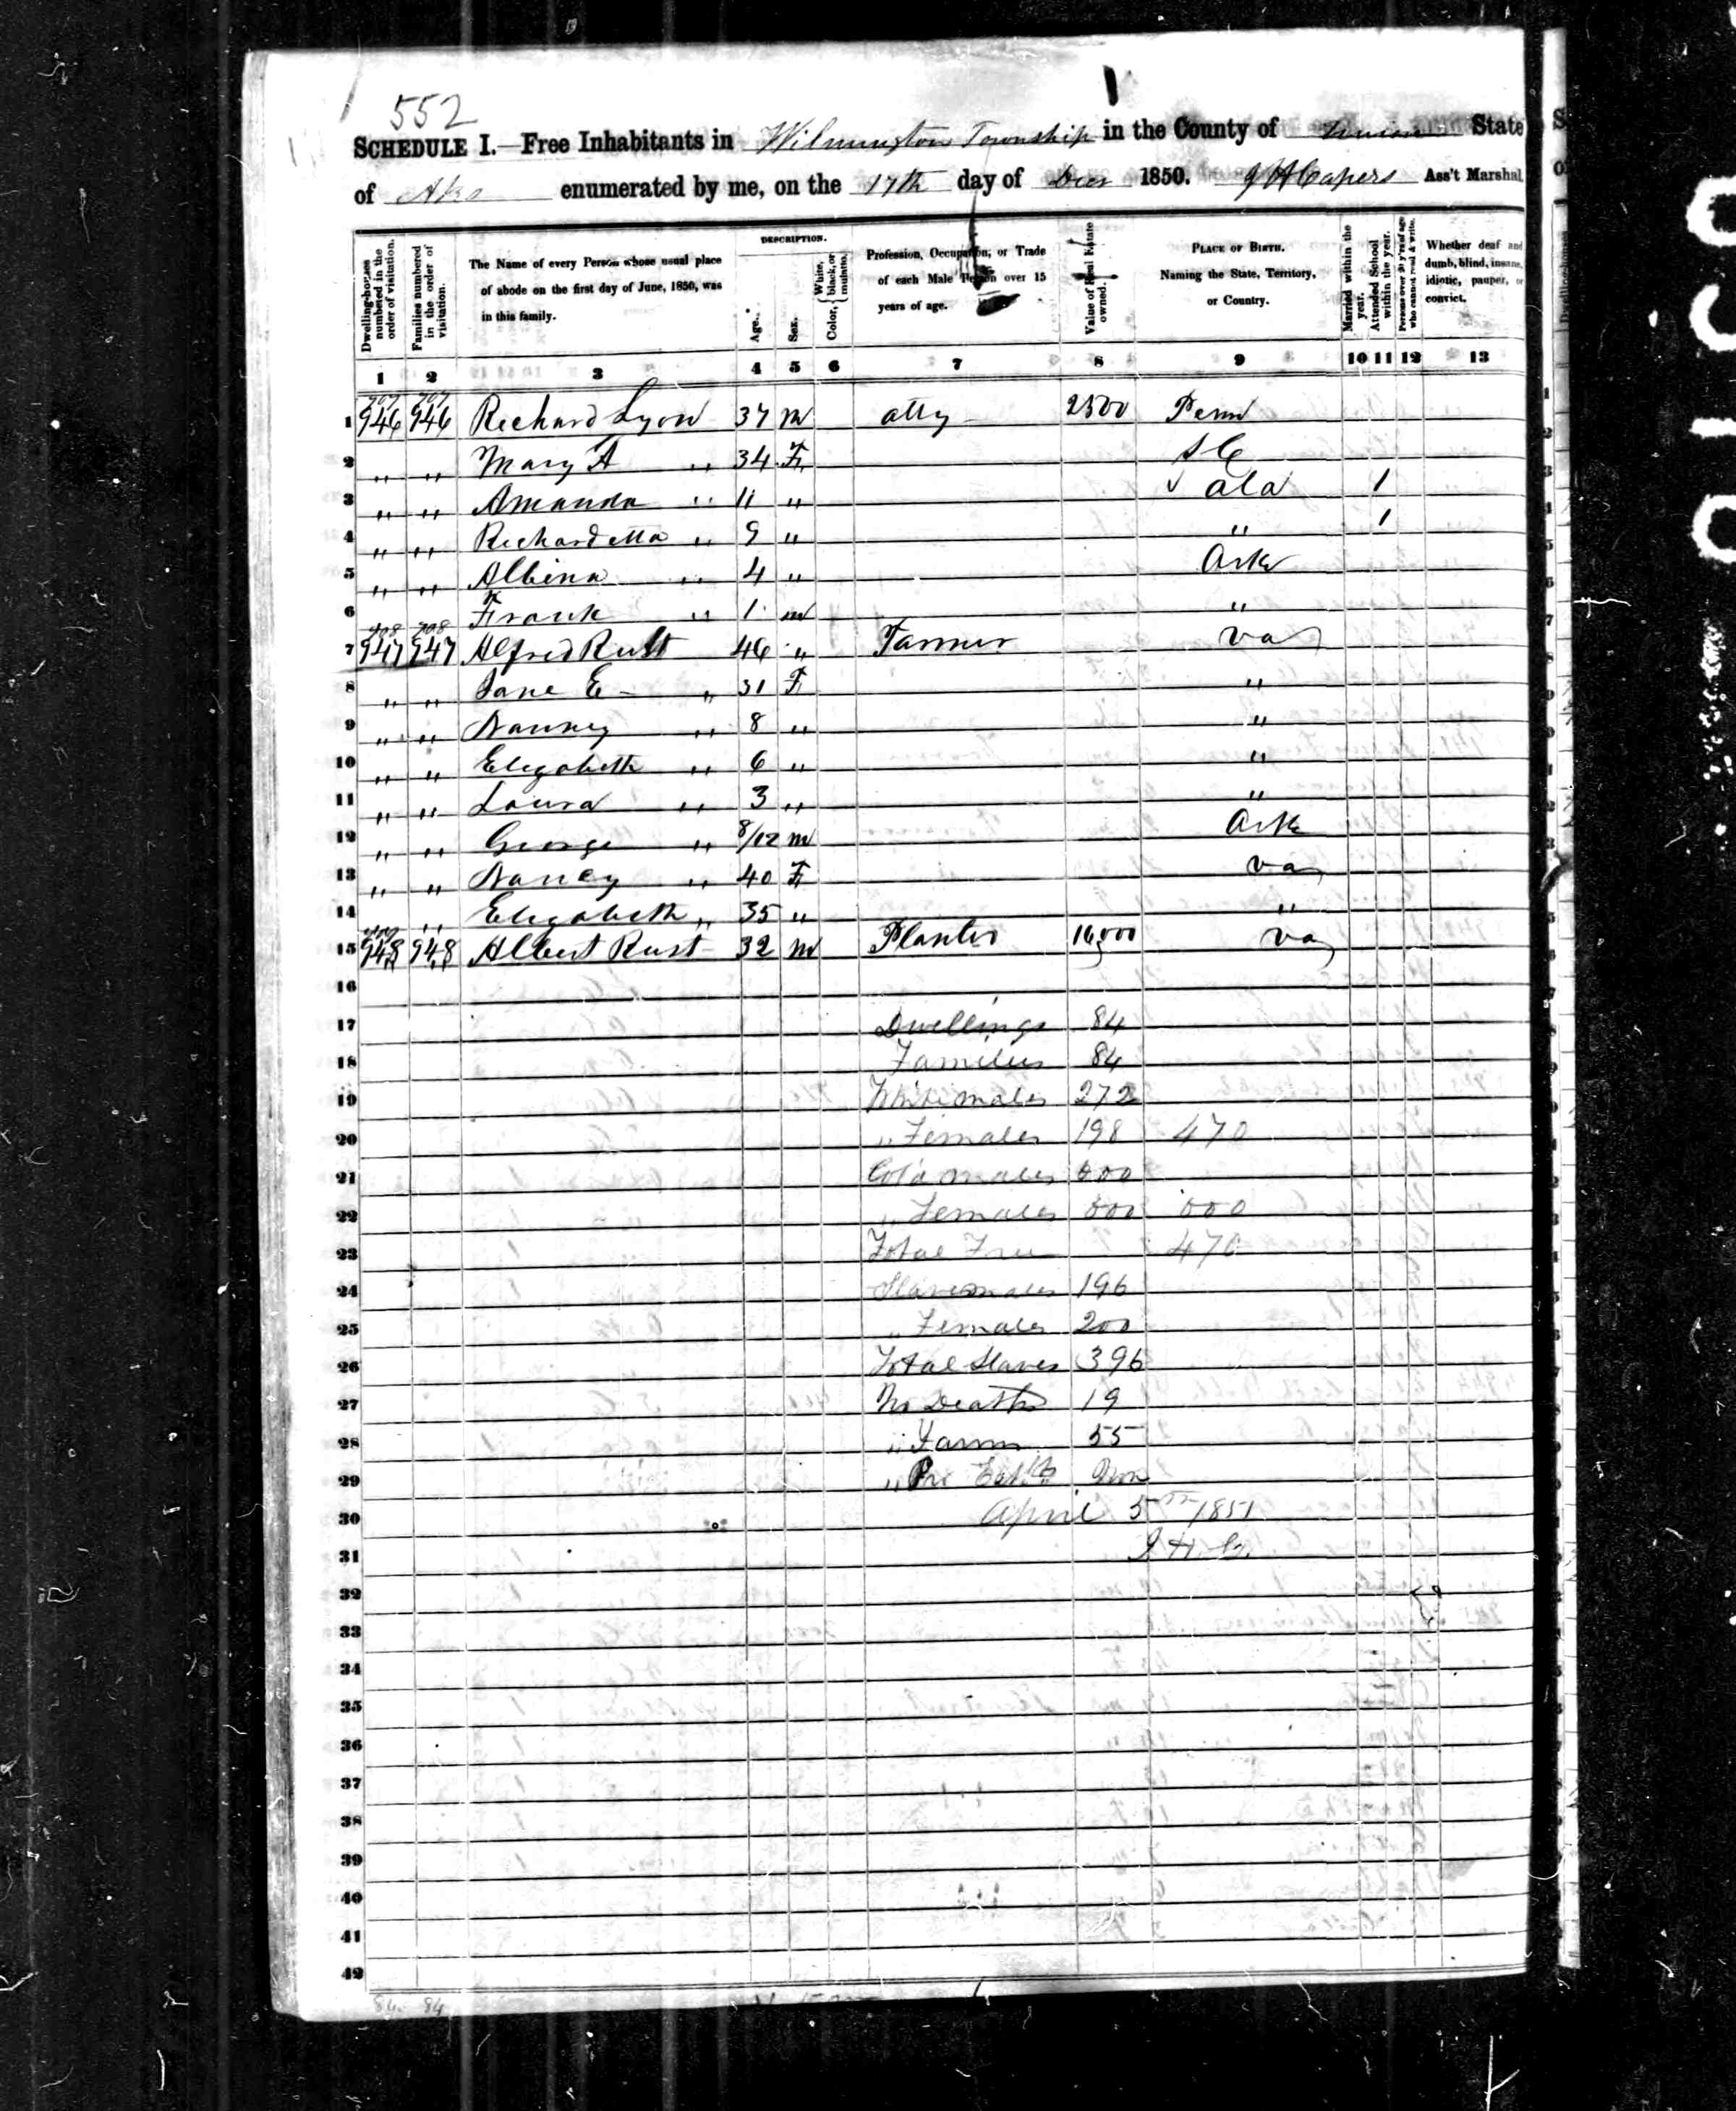 552
SCHEDULE I.—Free Inhabitants in Wilmington Township in the County of Union State
of Aks enumerated by me, on the 17th day of Decr 1850. J H Capers Ass't Marshal
Dwelling-houses numbered in the order of visitation.
Families numbered in the order of visitation.
The Name of every Person whose usual place of abode on the first day of June, 1850, was in this family.
DESCRIPTION.
Age.
Sex.
Color, { White, black, or mulatto.
Profession, Occupation, or Trade of each Male Person over 15 years of age.
Value of Real Estate owned.
PLACE OF BIRTH. Naming the State, Territory, or Country.
Married within the year.
Attended School within the year.
Persons over 20 y'rs of age who cannot read & write.
Whether deaf and dumb, blind, insane, idiotic, pauper, or convict.
1 2 3 4 5 6 7 8 9 10 11 12 13
707 707
1 946 946 Richard Lyon 37 m atty 2500 Penn
2 " " Mary A " 34 F S C
3 " " Amanda " 11 " ala 1
4 " " Richardetta " 9 " " 1
5 " " Albina " 4 " Ark
6 Frank " 1 m "
708 708
7 947 947 Alfred Rust 46 " Farmer va
8 " " Jane E " 31 F "
9 " " Nanney " 8 " "
10 " " Elizabeth " 6 " "
11 " " Laura " 3 " "
12 " " George " 8/12 m Ark
13 " " Nancy " 40 F va
14 " " Elizabeth " 35 " "
15 948 948 Albert Rust 32 m Planter 16,000 va
16
17 Dwellings 84
18 Families 84
19 White males 272
20 " Females 198 470
21 Col'd males 000
22 " Females 000 000
23 Total Free 470
24 Slave males 196
25 " Females 200
26 Total Slaves 396
27 No Deaths 19
28 " Farms 55
29 " Pro Estbs Non
30 April 5th 1851
31 J H C.
32
33
34
35
36
37
38
39
40
41
42
84 84